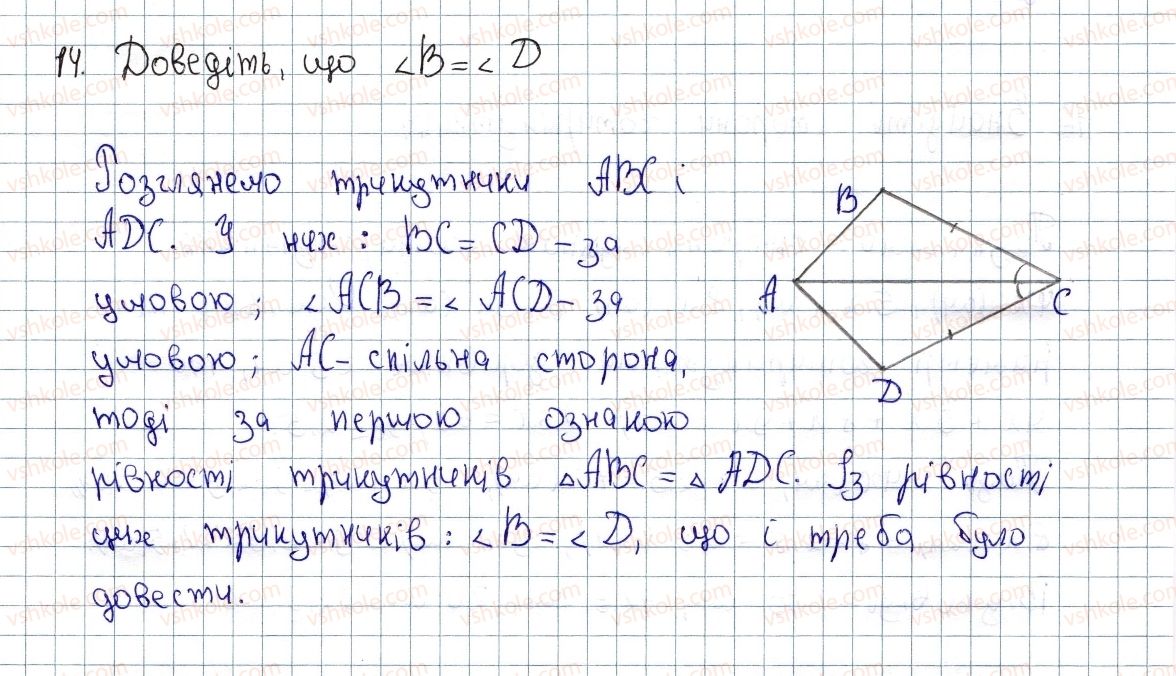 14. Доведіть, що ∠B=∠D
Розглянемо трикутники ABC і
ADC. У них: BC = CD – за
умовою; ∠ACB = ∠ACD – за
умовою; AC – спільна сторона,
тоді за першою ознакою
рівності трикутників △ABC = △ADC. Із рівності
цих трикутників: ∠B = ∠D, що і треба було
довести.
B
A
C
D